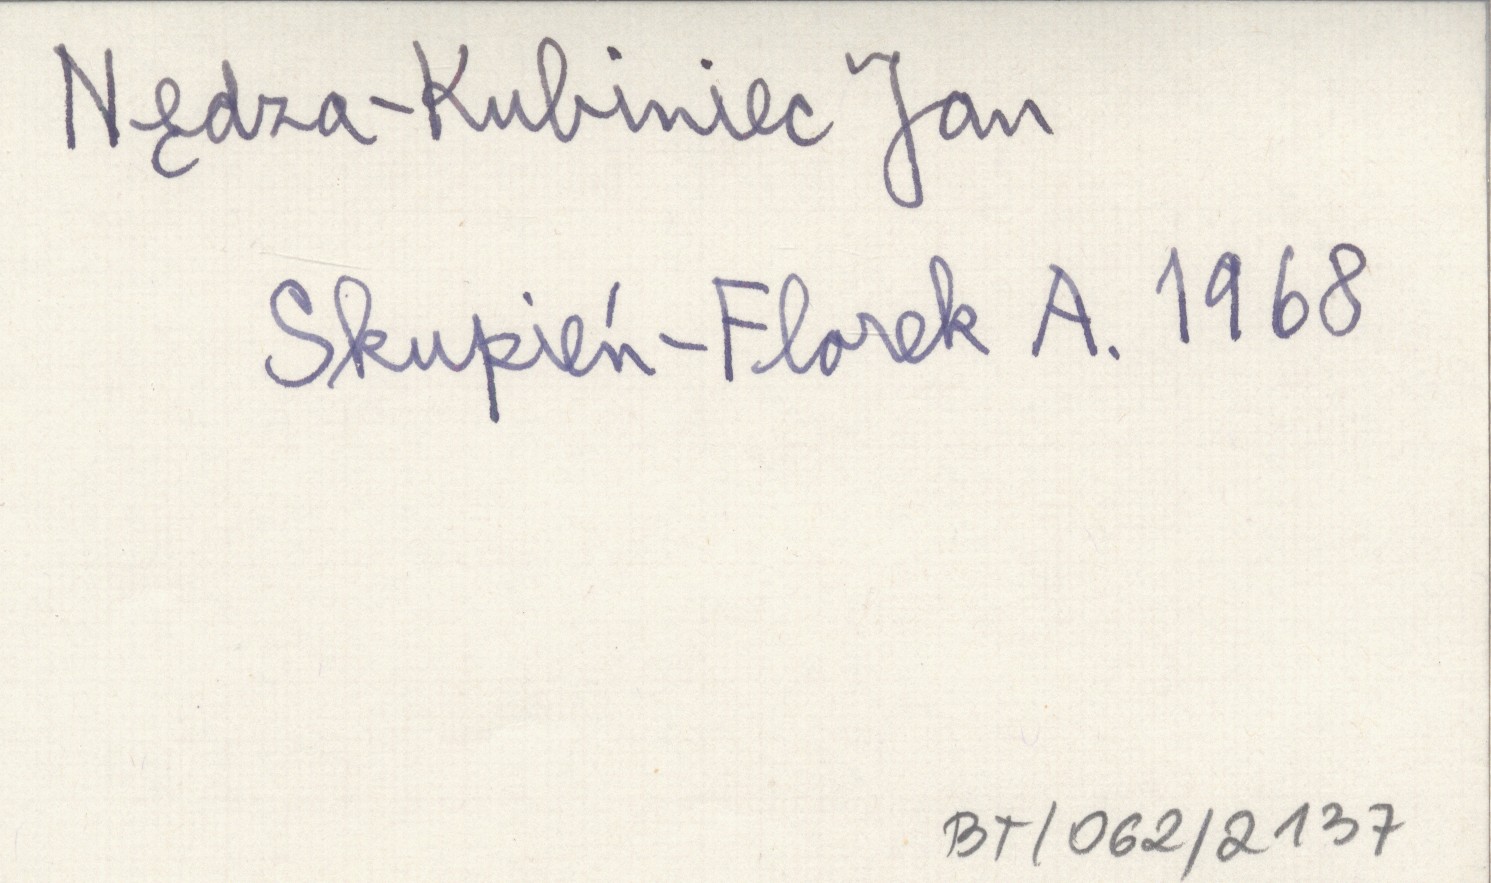 Nędza-Kubiniec Jan
Skupień-Florek A. 1968
BT/062/2137